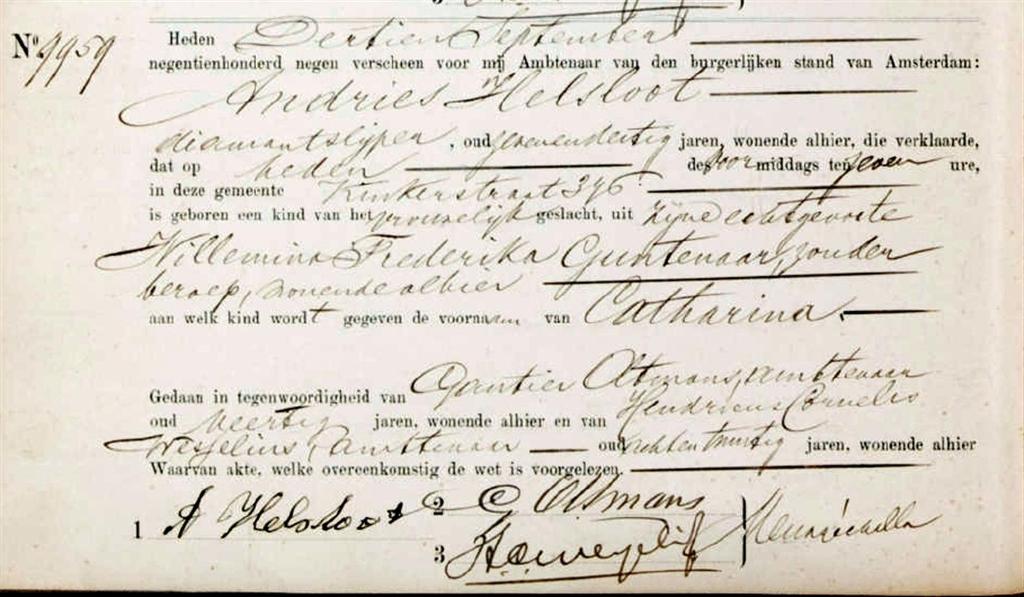 No. 9959
Heden Dertien September
negentienhonderd negen verscheen voor mij Ambtenaar van den burgerlijken stand van Amsterdam:
Andries Helsloot
diamantslijper, oud zevendertig jaren, wonende alhier, die verklaarde,
dat op heden des voor middags ten zeven ure,
in deze gemeente Kinkerstraat 396
is geboren een kind van het vrouwelijk geslacht, uit zijne echtgenoote
Willemina Frederika Guntenaar, zonder
beroep, wonende alhier
aan welk kind wordt gegeven de voornaam van Catharina.
Gedaan in tegenwoordigheid van Oltmans, ambtenaar
oud veertig jaren, wonende alhier en van Hendricus Cornelis
Wesselius, ambtenaar oud achtentwintig jaren, wonende alhier
Waarvan akte, welke overeenkomstig de wet is voorgelezen.
1 A Helsloot 2 G Oltmans
3